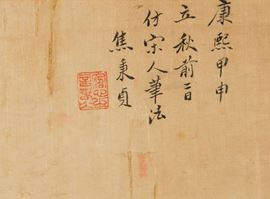 康熙甲申
立秋前一日
仿宋人筆法
焦秉貞